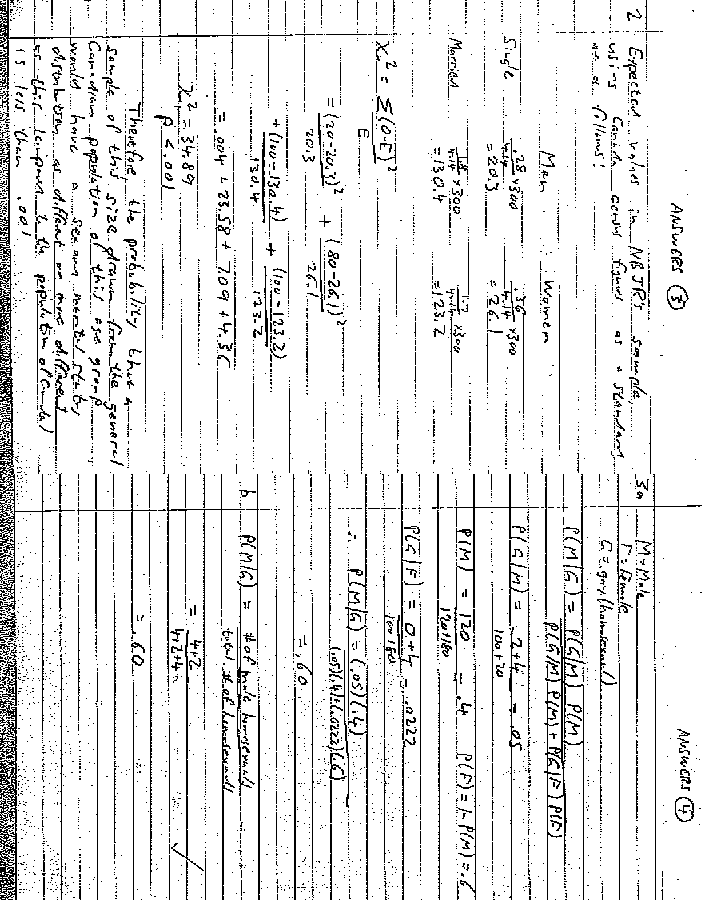 ANSWERS 3
2 Expected values in NBJR's sample,
using Canada census figures as a standard
are as follows:
Men Women
Single .28/4.14 x 300 .36/4.14 x 300
= 20.3 = 26.1
Married 1.8/4.14 x 300 1.7/4.14 x 300
= 130.4 = 123.2
X² = Σ(O-E)²
E
= (20-20.3)² + (80-26.1)²
20.3 26.1
+ (100-130.4) + (100-123.2)
130.4 123.2
= .004 + 23.58 + 7.09 + 4.36
X² = 34.89
P < .001
Therefore, the probability that a
sample of this size drawn from the general
Canadian population of this age group
would have a sex and marital status
distribution as different or more different
as this (compared to the population of Canada)
is less than .001
ANSWERS 4
3a M = Male
F = Female
G = gay (homosexual)
P(M|G) = P(G|M) P(M)
P(G|M) P(M) + P(G|F) P(F)
P(G|M) = 2+4 = .05
100+20
P(M) = 120 = .4 P(F) = 1 - P(M) = .6
120+180
P(G|F) = 0+4 = .0222
100+80
∴ P(M|G) = (.05)(.4)
(.05)(.4)+(.0222)(.6)
= .60
b P(M|G) = # of male homosexuals
total # of homosexuals
= 4+2
4+2+4
= .60